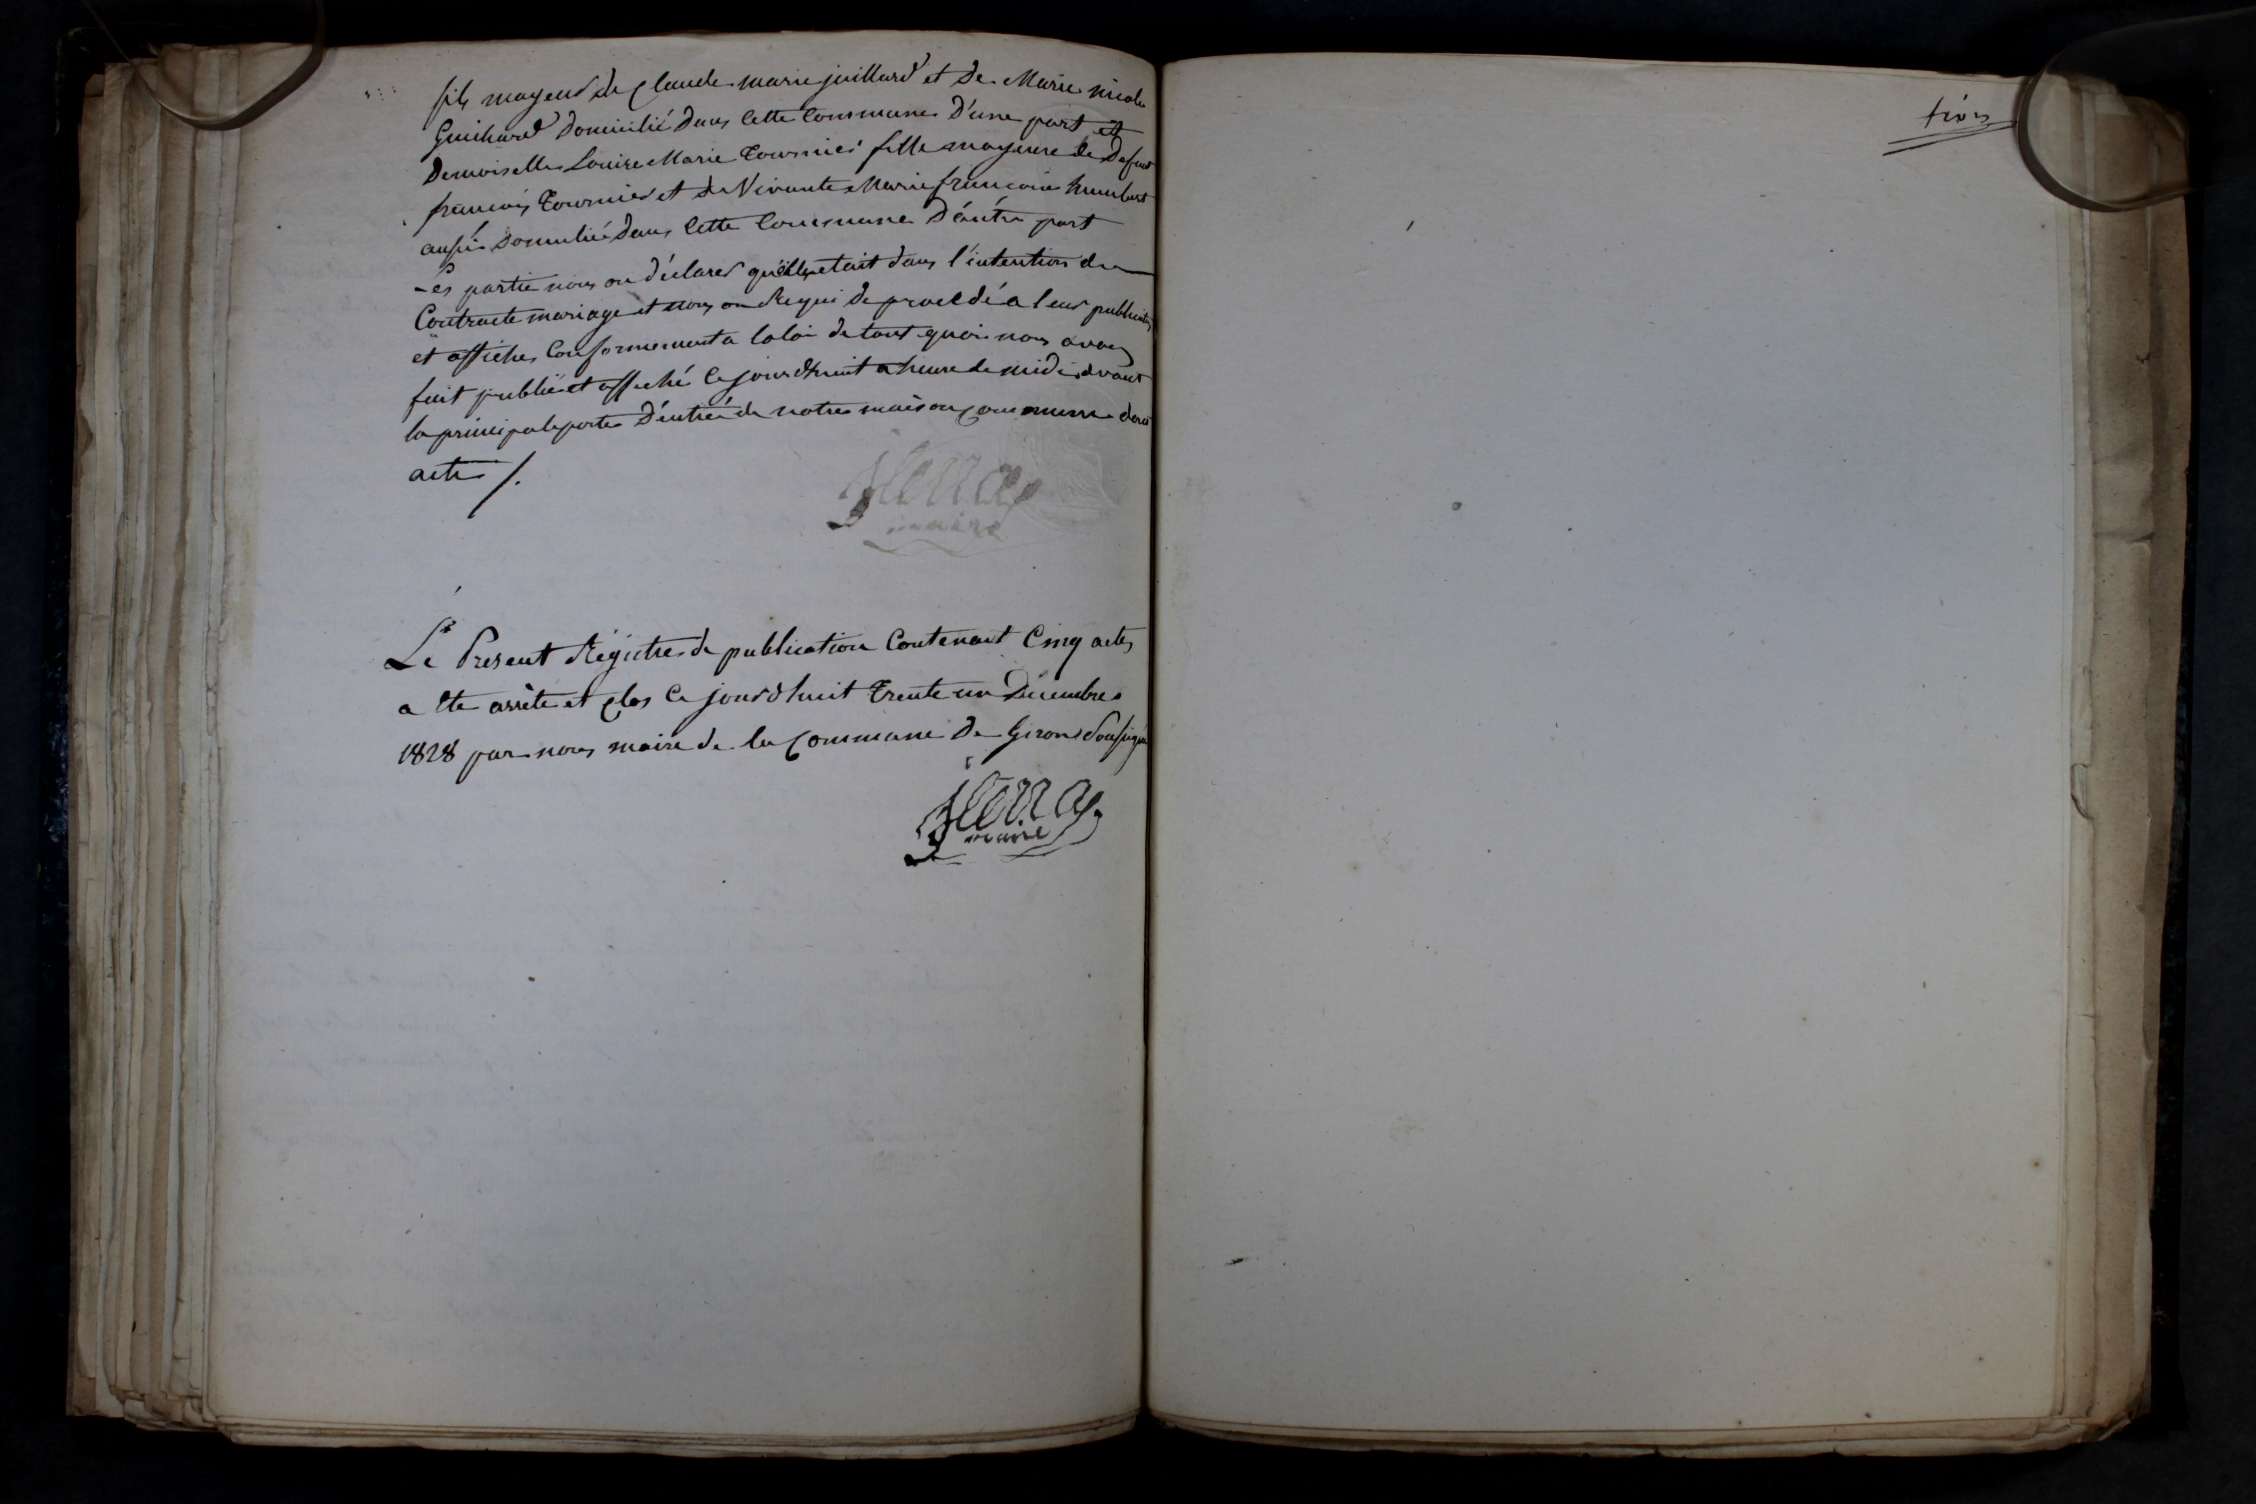 fils mayeur de Claude marie juillard et de Marie nicole
Guichard Domicilié dans Cette Commune D'une part et
Demoiselle Louise Marie Tournier fille mayeure de Defunt
françois Tournier et de Vivante Marie françoise humbert
aussi Domicilié dans Cette Commune D'autre part
Les partie nous on déclarer qu'elle etait dans l'intention de
Contracte mariage et nous on Requi de procedé a leur publication
et affiches Conformement a la loi de tout quoi nous avons
fait publié et affiché Ce jourd'huit a heure de midi devant
la principale porte D'entrée de notre maison Commune dont
acte /.
maire
Le Present Régistre de publication Contenant Cinq actes
a ete arrête et Clos Ce jourd'huit Trente un Decembre
1828 par nous maire de la Commune De Giron Soussigné
maire